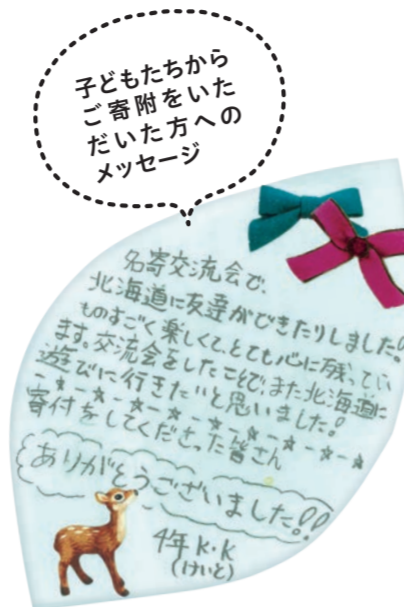 子どもたちから
ご寄附をいた
だいた方への
メッセージ
名寄交流会で、
北海道に友達ができたりしました。
ものすごく楽しくて、とても心に残ってい
ます。交流会をしたことで、また北海道に
遊びに行きたいと思いました!
寄付をしてくださった皆さん
ありがとうございました!!
4年 K・K
(けいと)